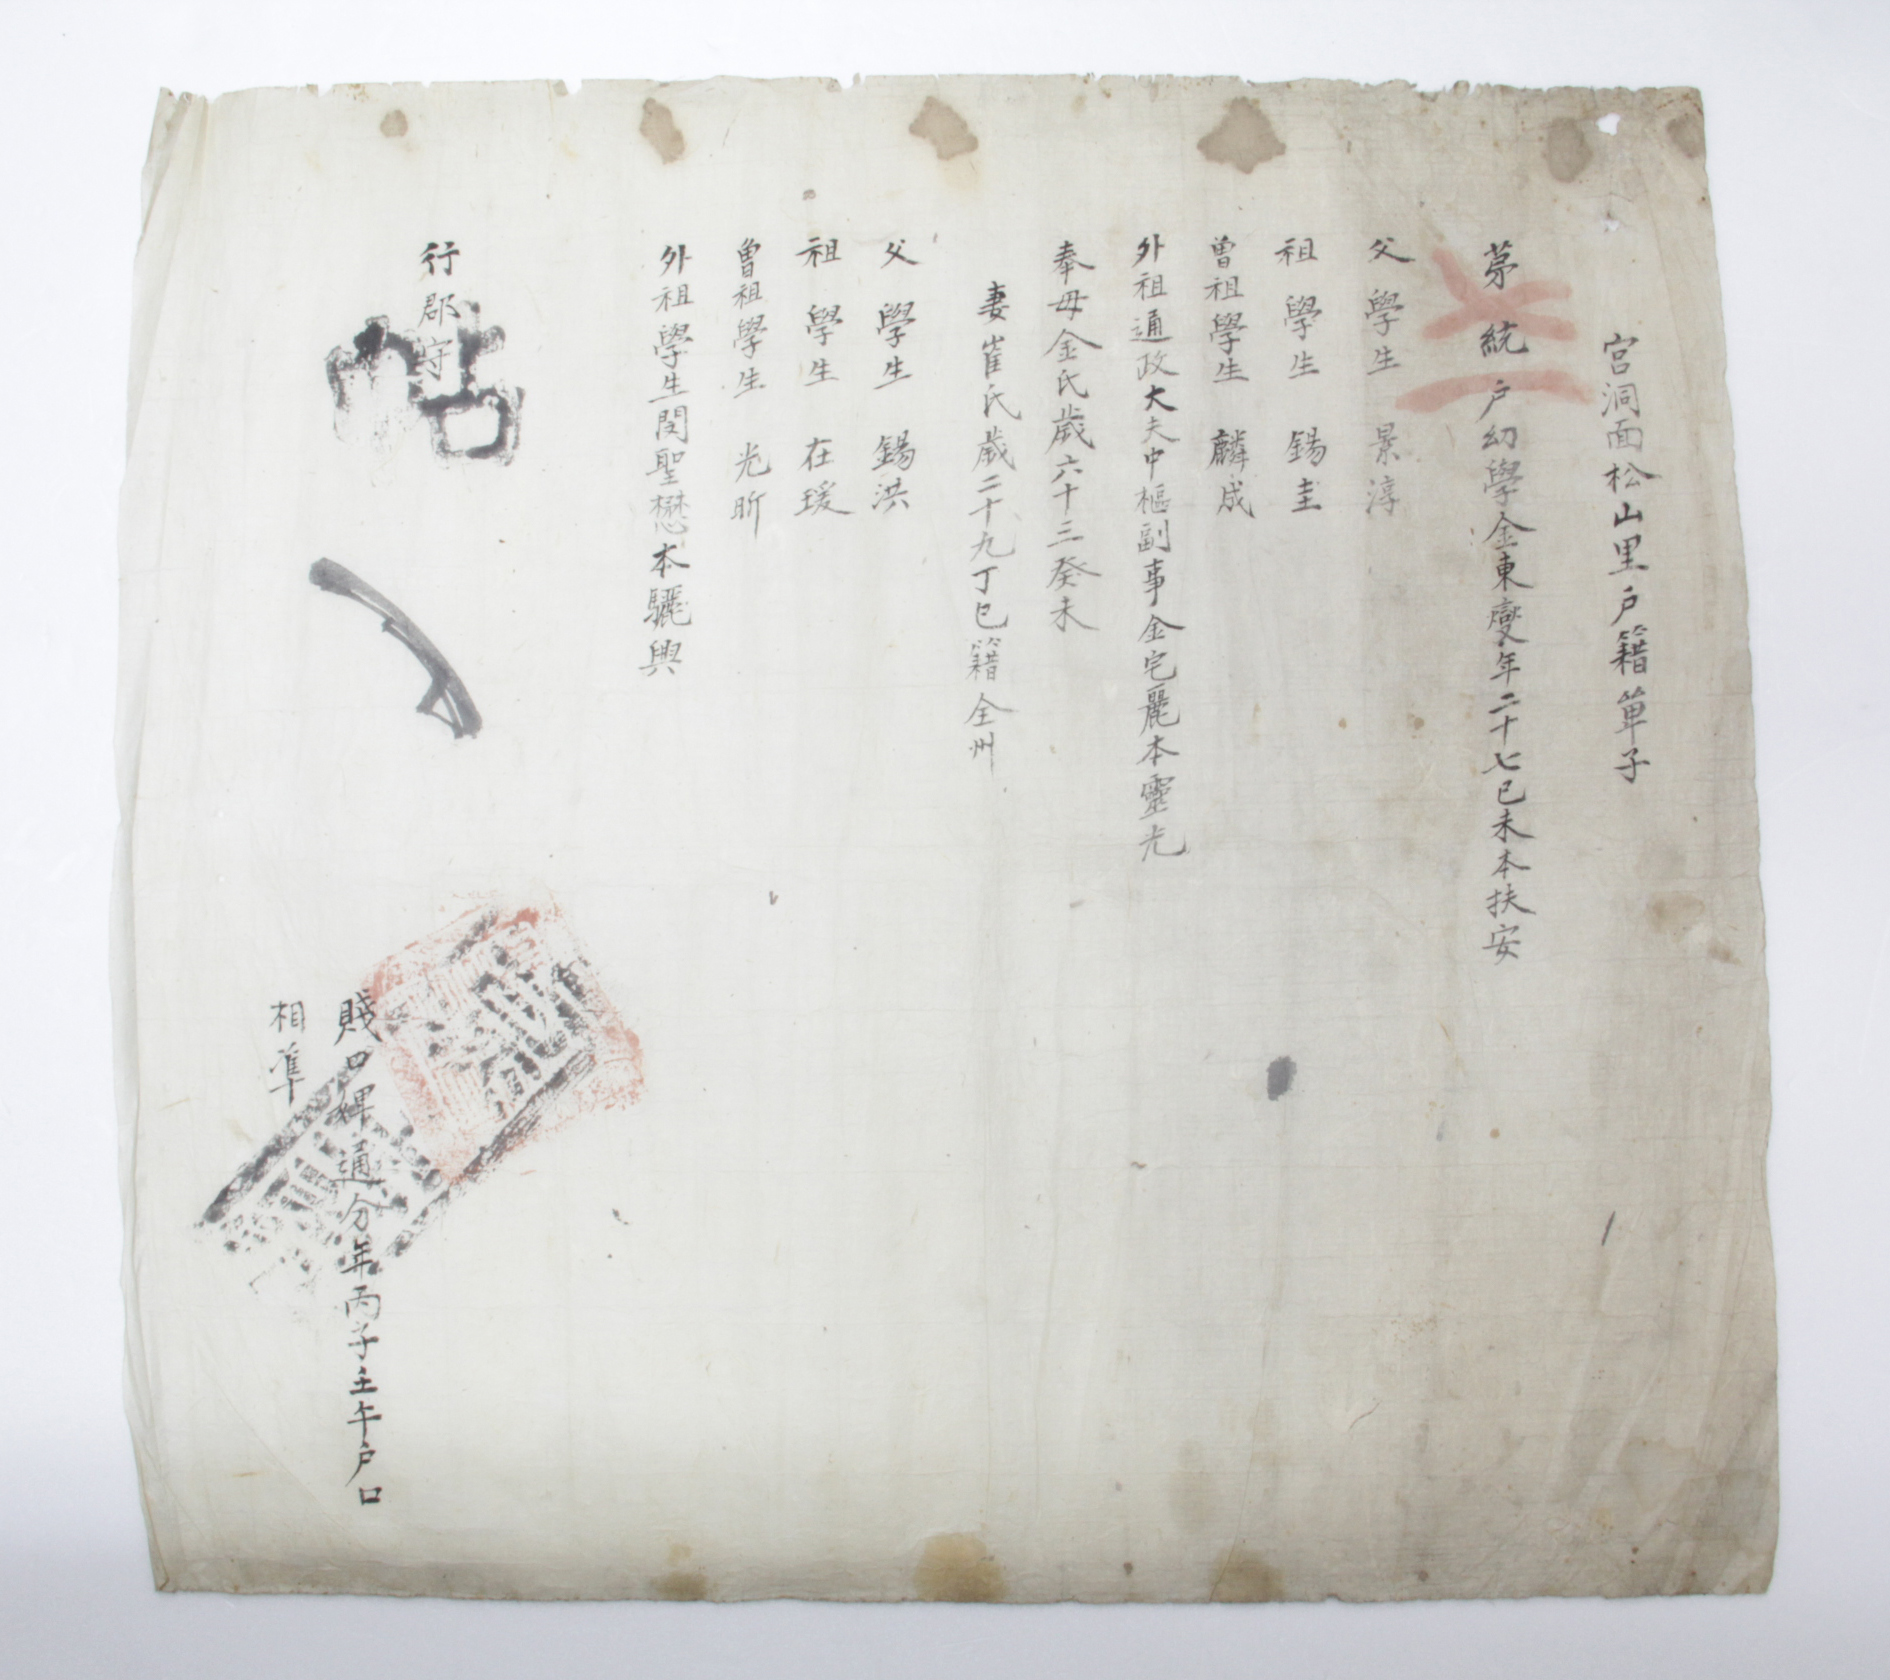 宮洞面松山里戶籍單子
苐 統 戶幼學金東燮年二十七己未本扶安
父 學生 景淳
祖 學生 錫圭
曾祖學生 麟成
外祖通政大夫中樞副事金宅麗本靈光
奉母金氏歲六十三癸未
妻崔氏歲二十九丁巳籍全州
父 學生 錫洪
祖 學生 在瑗
曾祖學生 光昕
外祖學生閔聖懋本驪興
行郡守
帖
賤口婢通分年丙子壬午戶口
相準